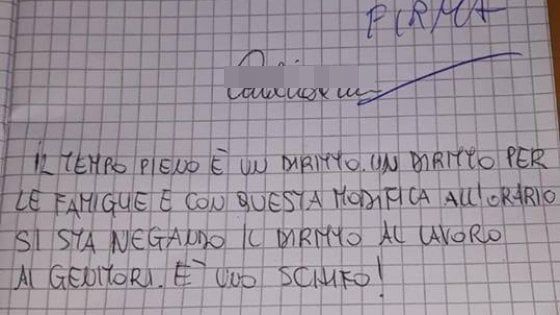 FIRMA
IL TEMPO PIENO È UN DIRITTO. UN DIRITTO PER
LE FAMIGLIE E CON QUESTA MODIFICA ALL'ORARIO
SI STA NEGANDO IL DIRITTO AL LAVORO
AI GENITORI. È UNO SCHIFO!